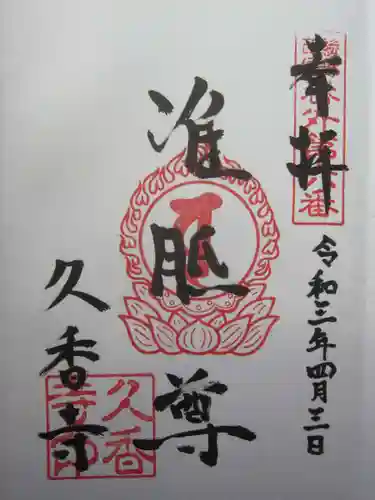 奉拝
令和三年四月三日
准胝尊
久香寺
久香寺印